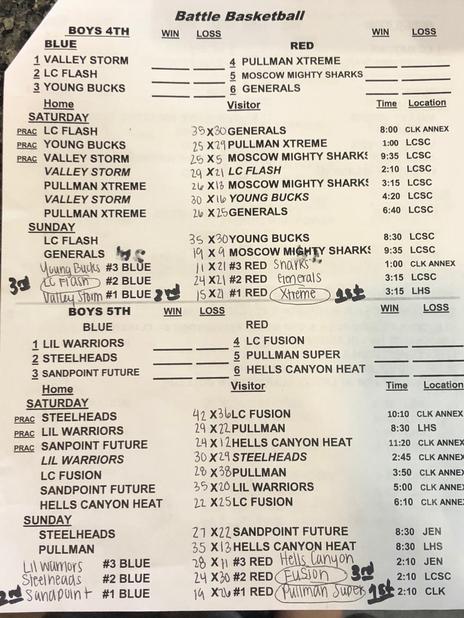 Battle Basketball
BOYS 4TH WIN LOSS WIN LOSS
BLUE RED
1 VALLEY STORM 4 PULLMAN XTREME
2 LC FLASH 5 MOSCOW MIGHTY SHARKS
3 YOUNG BUCKS 6 GENERALS
Home Visitor Time Location
SATURDAY
PRAC LC FLASH 35 X 30 GENERALS 8:00 CLK ANNEX
PRAC YOUNG BUCKS 25 X 29 PULLMAN XTREME 1:00 LCSC
PRAC VALLEY STORM 25 X 5 MOSCOW MIGHTY SHARKS 9:35 LCSC
VALLEY STORM 29 X 21 LC FLASH 2:10 LCSC
PULLMAN XTREME 26 X 18 MOSCOW MIGHTY SHARKS 3:15 LCSC
VALLEY STORM 30 X 16 YOUNG BUCKS 4:20 LCSC
PULLMAN XTREME 26 X 25 GENERALS 6:40 LCSC
SUNDAY
LC FLASH 35 X 30 YOUNG BUCKS 8:30 LCSC
GENERALS 19 X 9 MOSCOW MIGHTY SHARKS 9:35 LCSC
Young Bucks #3 BLUE 11 X 21 #3 RED Sharks 1:00 CLK ANNEX
3rd LC Flash #2 BLUE 24 X 21 #2 RED Generals 3:15 LCSC
Valley Storm #1 BLUE 2nd 15 X 21 #1 RED Xtreme 1st 3:15 LHS
BOYS 5TH WIN LOSS WIN LOSS
BLUE RED
1 LIL WARRIORS 4 LC FUSION
2 STEELHEADS 5 PULLMAN SUPER
3 SANDPOINT FUTURE 6 HELLS CANYON HEAT
Home Visitor Time Location
SATURDAY
PRAC STEELHEADS 42 X 36 LC FUSION 10:10 CLK ANNEX
PRAC LIL WARRIORS 29 X 22 PULLMAN 8:30 LHS
PRAC SANPOINT FUTURE 24 X 12 HELLS CANYON HEAT 11:20 CLK ANNEX
LIL WARRIORS 30 X 29 STEELHEADS 2:45 CLK ANNEX
LC FUSION 28 X 38 PULLMAN 3:50 CLK ANNEX
SANDPOINT FUTURE 35 X 20 LIL WARRIORS 5:00 CLK ANNEX
HELLS CANYON HEAT 22 X 25 LC FUSION 6:10 CLK ANNEX
SUNDAY
STEELHEADS 27 X 22 SANDPOINT FUTURE 8:30 JEN
PULLMAN 35 X 13 HELLS CANYON HEAT 8:30 LHS
Lil Warriors #3 BLUE 28 X 11 #3 RED Hells Canyon 2:10 JEN
Steelheads #2 BLUE 24 X 30 #2 RED Fusion 3rd 2:10 LCSC
2nd Sandpoint #1 BLUE 19 X 26 #1 RED Pullman Super 1st 2:10 CLK